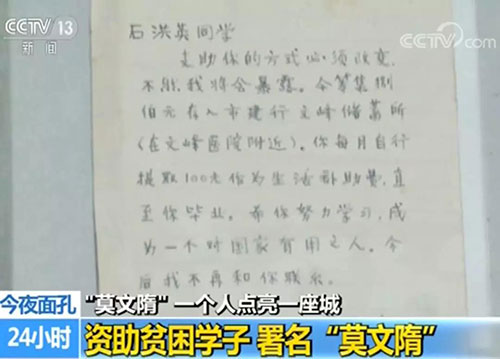 CCTV 13
新闻
CCTV.com
石洪英同学
支助你的方式必须改变,
不然我将会暴露。今筹集捌
佰元存入市建行文峰储蓄所
(在文峰医院附近)。你每月自行
提取100元作为生活补助费,直
至你毕业。希你努力学习,成
为一个对国家有用之人。今
后我不再和你联系。
今夜面孔
24小时
“莫文隋” 一个人点亮一座城
资助贫困学子 署名“莫文隋”